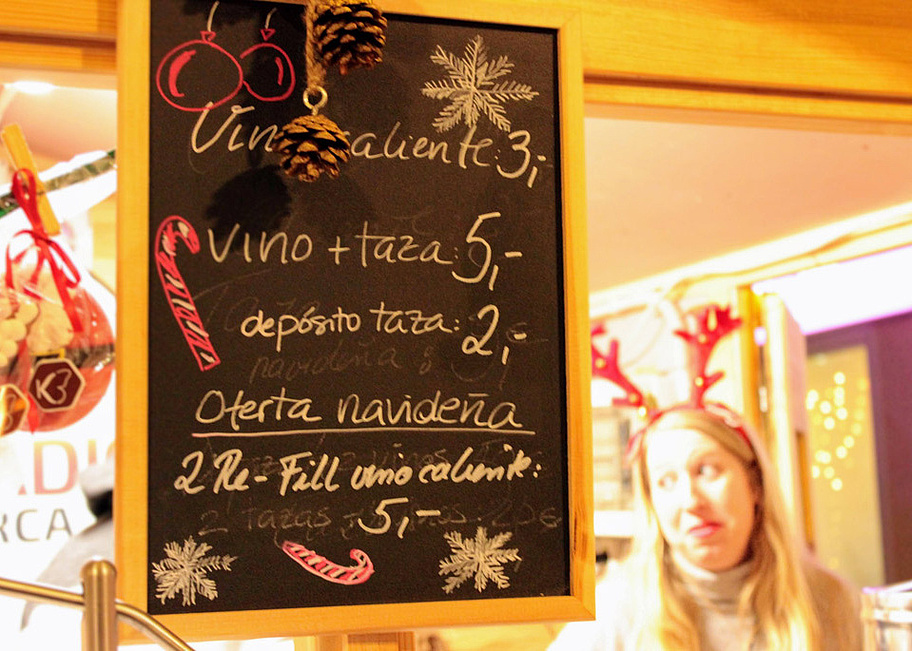 Vino caliente: 3,-
Vino + taza: 5,-
depósito taza: 2,-
Oferta navideña
2 Re-Fill vino caliente:
5,-
K3